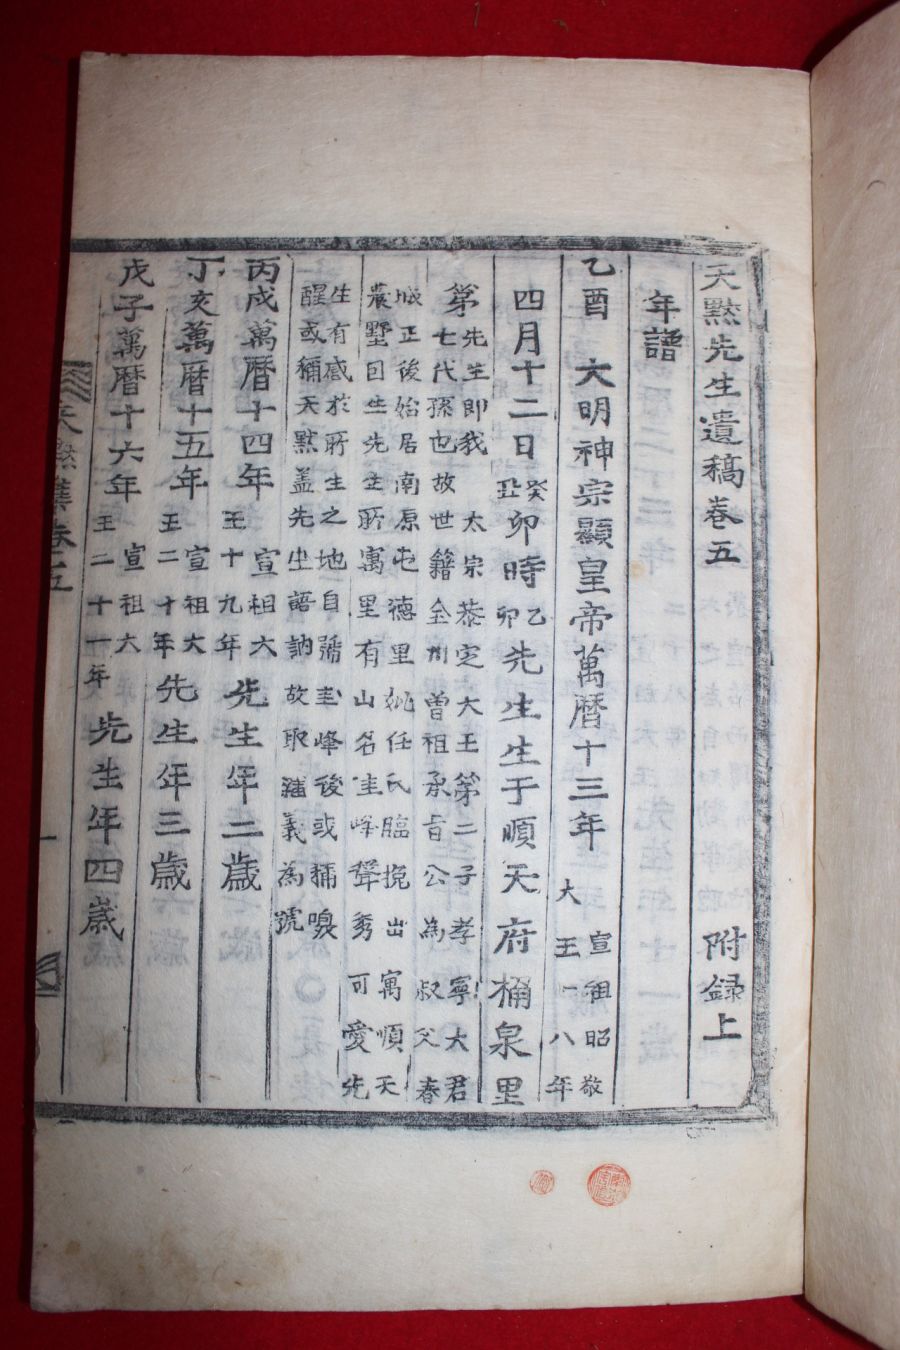 天默先生遺稿卷五 附録上
年譜
乙酉 大明神宗顯皇帝萬曆十三年 宣祖昭敬
大王一八年
四月十二日癸丑卯時乙卯先生生于順天府桶泉里
先生即我 太宗恭定大王第二子孝寧大君
第七代孫也故世籍全州曾祖承旨公為叔父春
城正後始居南原屯德里妣任氏臨挽出寓順天
農墅回生先生所寓里有山名圭峰聳秀可愛先
生有感於所生之地自號圭峰後或稱嗅
醒或稱天默盖先生語訥故取諸義為號
丙戌萬曆十四年 宣祖大王十九年 先生年二歲
丁亥萬曆十五年 宣祖大王二十年 先生年三歲
戊子萬曆十六年 宣祖大王二十一年 先生年四歲
天默集卷之五 一